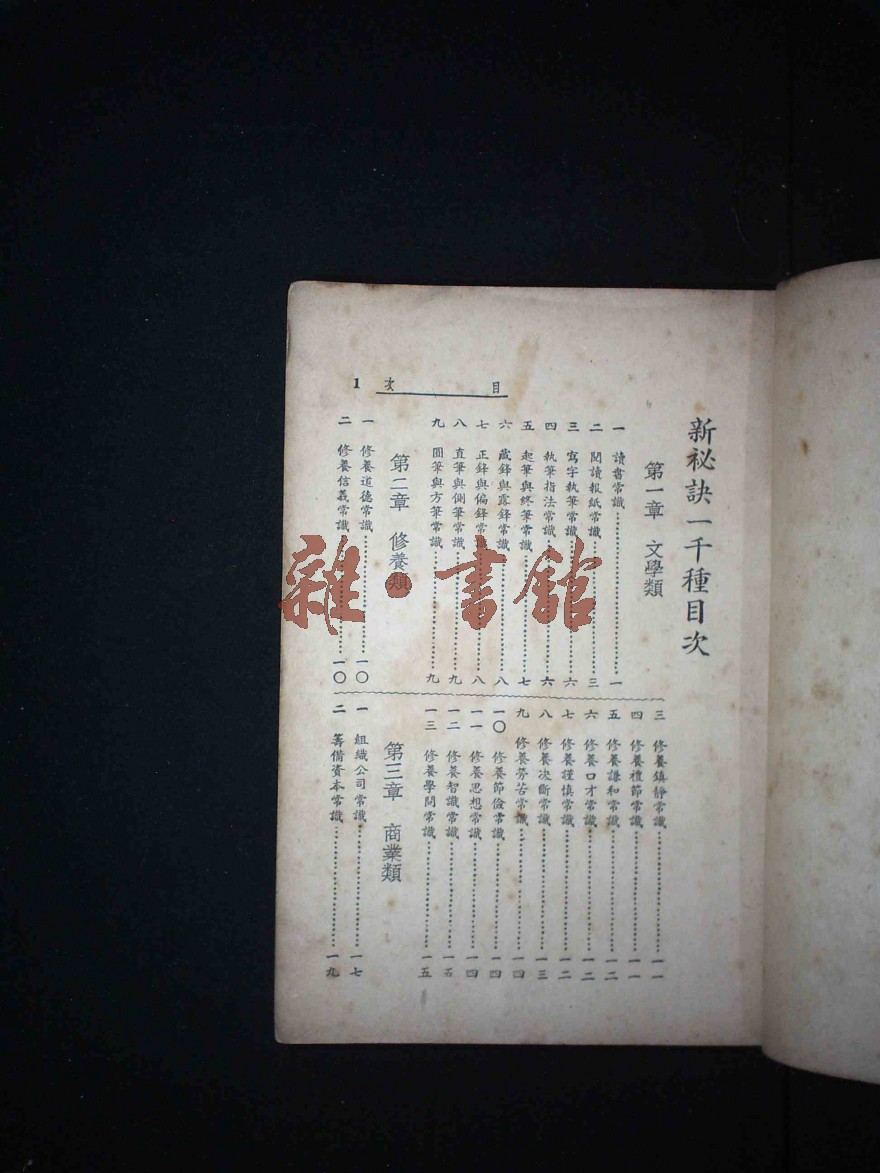 目次 1
新祕訣一千種目次
第一章 文學類
一 讀書常識…………一
二 閱讀報紙常識…………三
三 寫字執筆常識…………六
四 執筆指法常識…………六
五 起筆與終筆常識…………七
六 藏鋒與露鋒常識…………八
七 正鋒與偏鋒常識…………八
八 直筆與側筆常識…………九
九 圓筆與方筆常識…………九
第二章 修養類
一 修養道德常識…………一〇
二 修養信義常識…………一〇
三 修養鎮靜常識…………一一
四 修養禮節常識…………一一
五 修養謙和常識…………一二
六 修養口才常識…………一二
七 修養謹慎常識…………一二
八 修養決斷常識…………一三
九 修養勞苦常識…………一四
一〇 修養節儉常識…………一四
一一 修養思想常識…………一四
一二 修養智識常識…………一五
一三 修養學問常識…………一五
第三章 商業類
一 組織公司常識…………一七
二 籌備資本常識…………一九
雜·書館